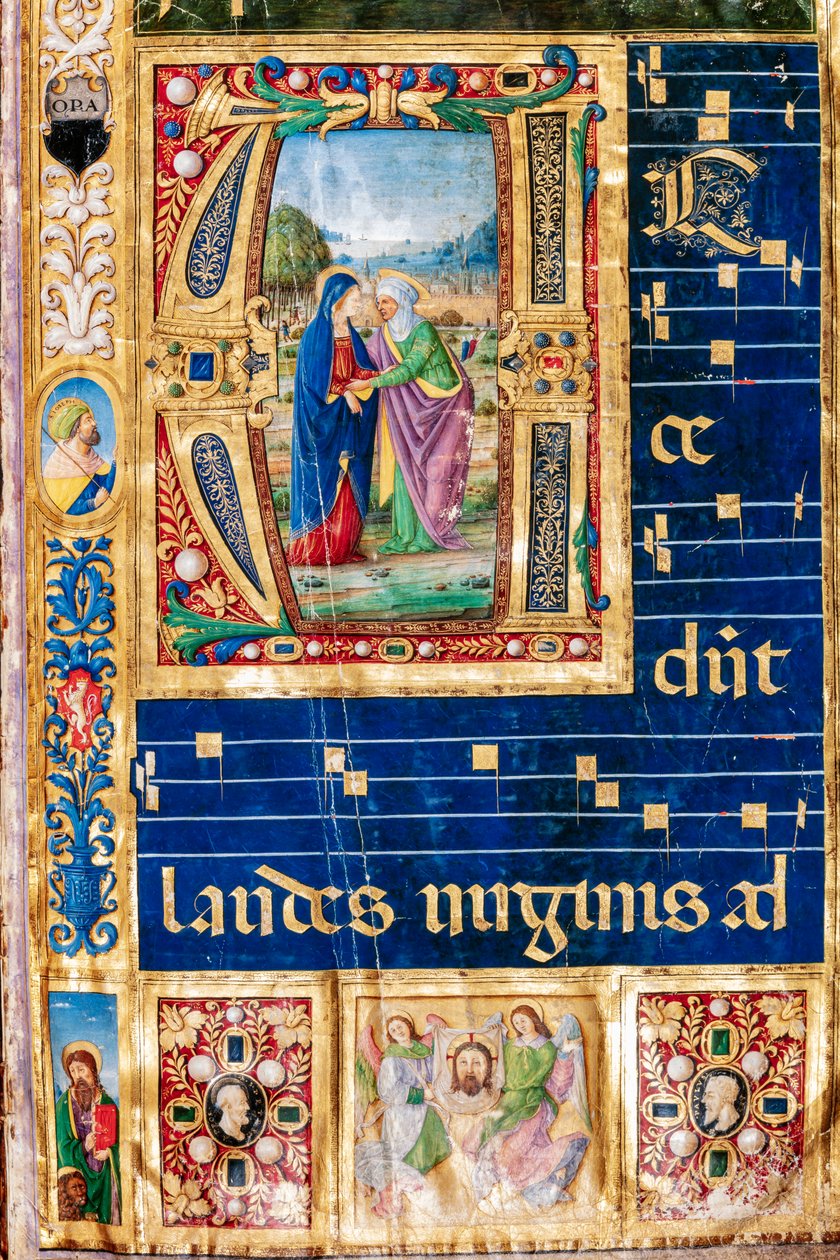 O.P.A
A C
ce
dũt
laudes uirginis ad